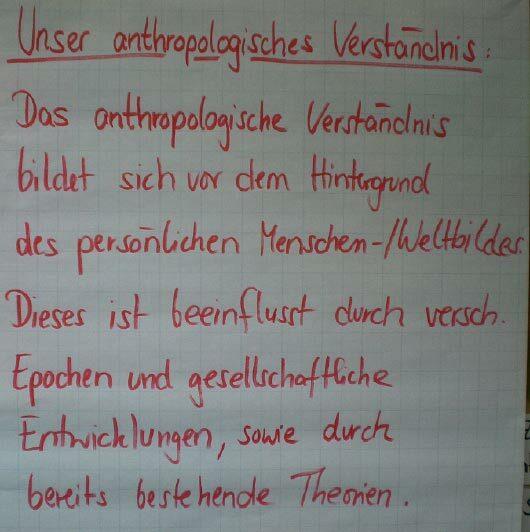 Unser anthropologisches Verständnis:
Das anthropologische Verständnis
bildet sich vor dem Hintergrund
des persönlichen Menschen-/Weltbildes.
Dieses ist beeinflusst durch versch.
Epochen und gesellschaftliche
Entwicklungen, sowie durch
bereits bestehende Theorien.